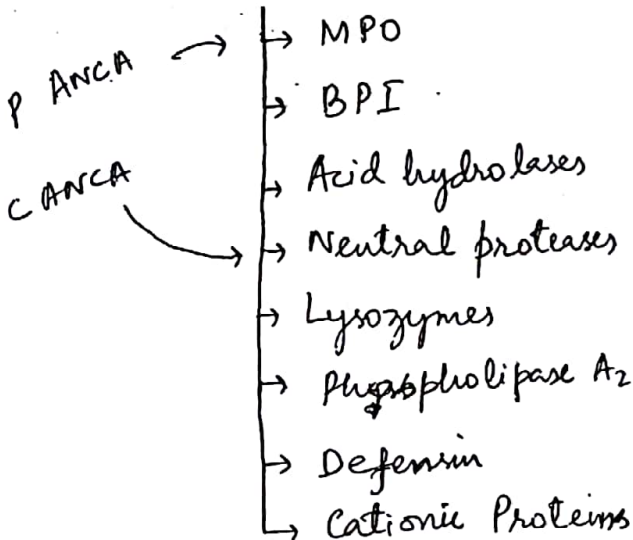 P ANCA
→ MPO
→ BPI
→ Acid hydrolases
C ANCA
→ Neutral proteases
→ Lysozymes
→ Phospholipase A₂
→ Defensin
→ Cationic Proteins